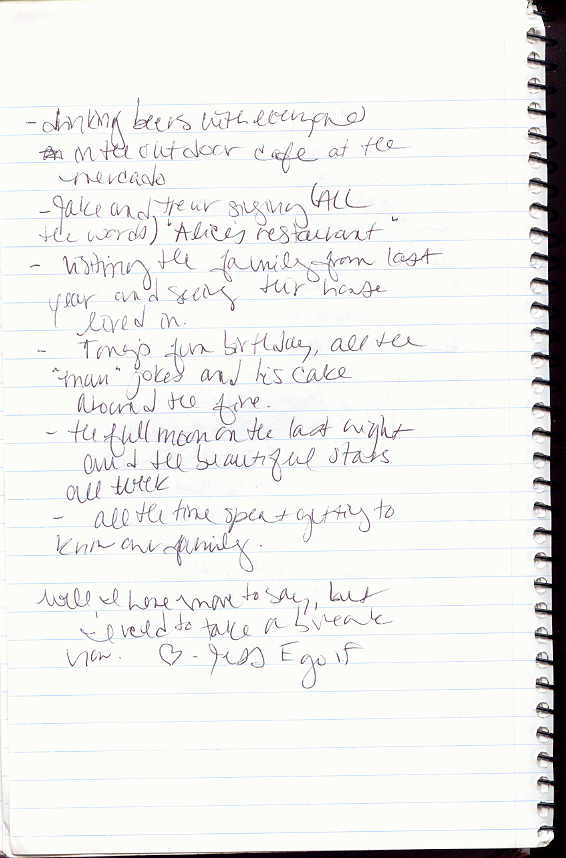 - drinking beers with everyone
in the outdoor cafe at the
mercado
- Jake and Trevr singing (ALL
the words) "Alice's restaurant"
- visiting the family from last
year and seeing their house
lived in.
- Tony's fun birthday, all the
"man" jokes and his cake
around the fire.
- the full moon on the last night
and the beautiful stars
all week
- all the time spent getting to
know our family.
well I have more to say, but
I need to take a break
now. ♡ - Jess Egolf